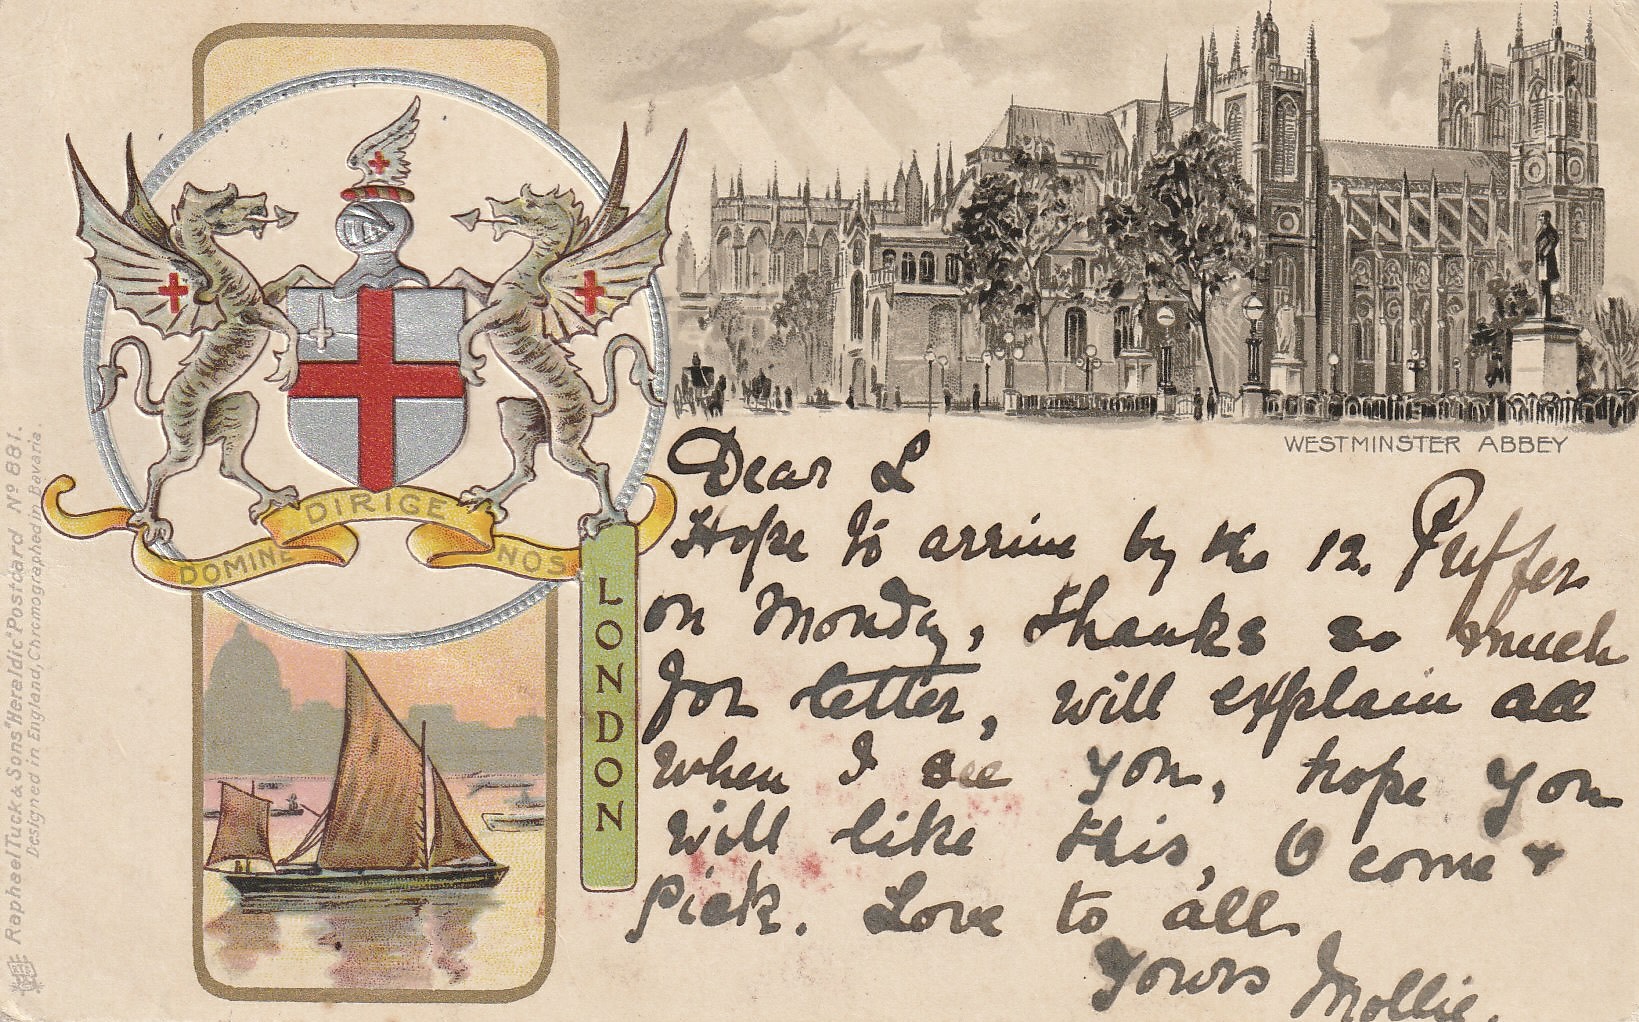 DOMINE DIRIGE NOS
LONDON
WESTMINSTER ABBEY
Raphael Tuck & Sons' "Heraldic" Postcard Nº 881.
Designed in England, Chromographed in Bavaria.
Dear L
Hope to arrive by the 12. Puffer
on Monday, thanks so much
for letter, will explain all
when I see you, hope you
will like this, O come &
Pick. Love to all
Yours Mollie.